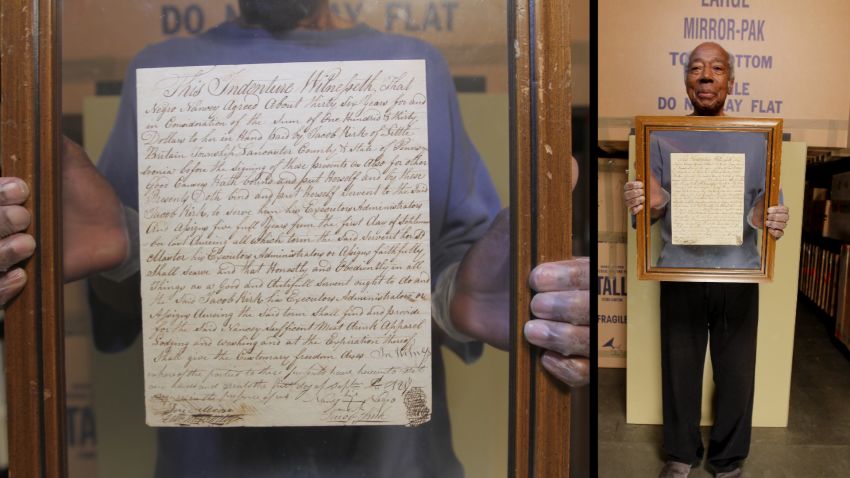 DO NOT LAY FLAT
This Indenture Witnesseth, That
Negro Nancy Agreed About Thirty Six Years for and
in Consideration of the Sum of One Hundred & Thirty
Dollars to her in Hand Paid by Jacob Kirk of Little
Britain Township Lancaster County & State of
before the Signing of these presents as Also for other
Good Causes Hath bound and put Herself and by these
Presents Doth bind and put Herself Servent to the Said
Jacob Kirk, to serve him his Executors Administrators
And Assigns five full Years from the first Day of
During all which term the Said Servent her
Master his Executors Administrators or Assigns faithfully
Shall Searve and that Honestly and Obediently in all
Things as a Good and Dutifull Servent ought to Do and
the Said Jacob Kirk his Executors Administrators or
Assigns During the Said term Shall find and provide
for the Said Nancy Sufficent Meat Drink Apparel
Lodging and washing and at the Expiration thereof
Shall give the Customary freedom Dues In Witness
where of the parties to these presents have hereunto set
day of
in the presence of us
Nancy Negro
Jacob Kirk
LARGE
MIRROR-PAK
BOTTOM
DO NOT LAY FLAT
TALL
FRAGILE